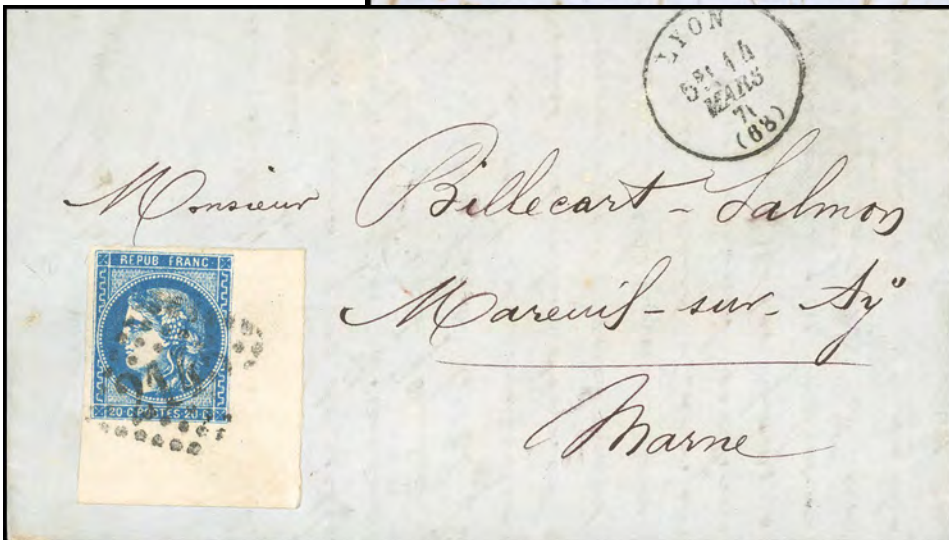 LYON
5E 14
MARS
71
(68)
Monsieur Billecart - Salmon
Mareuil - sur - Ay
Marne
REPUB FRANC
20 C POSTES 20 C